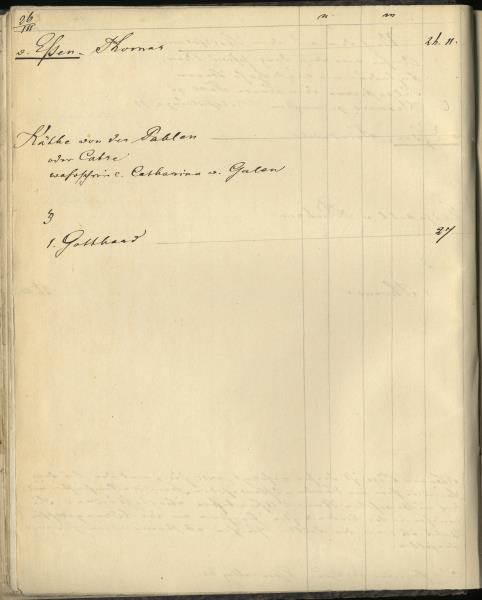 26
III
n. m.
v. Eßen - Thomas 26. II.
Käthe von der Pahlen
oder Catre
wahrschein c. Catharina v. Galen
3
1. Gotthard 27